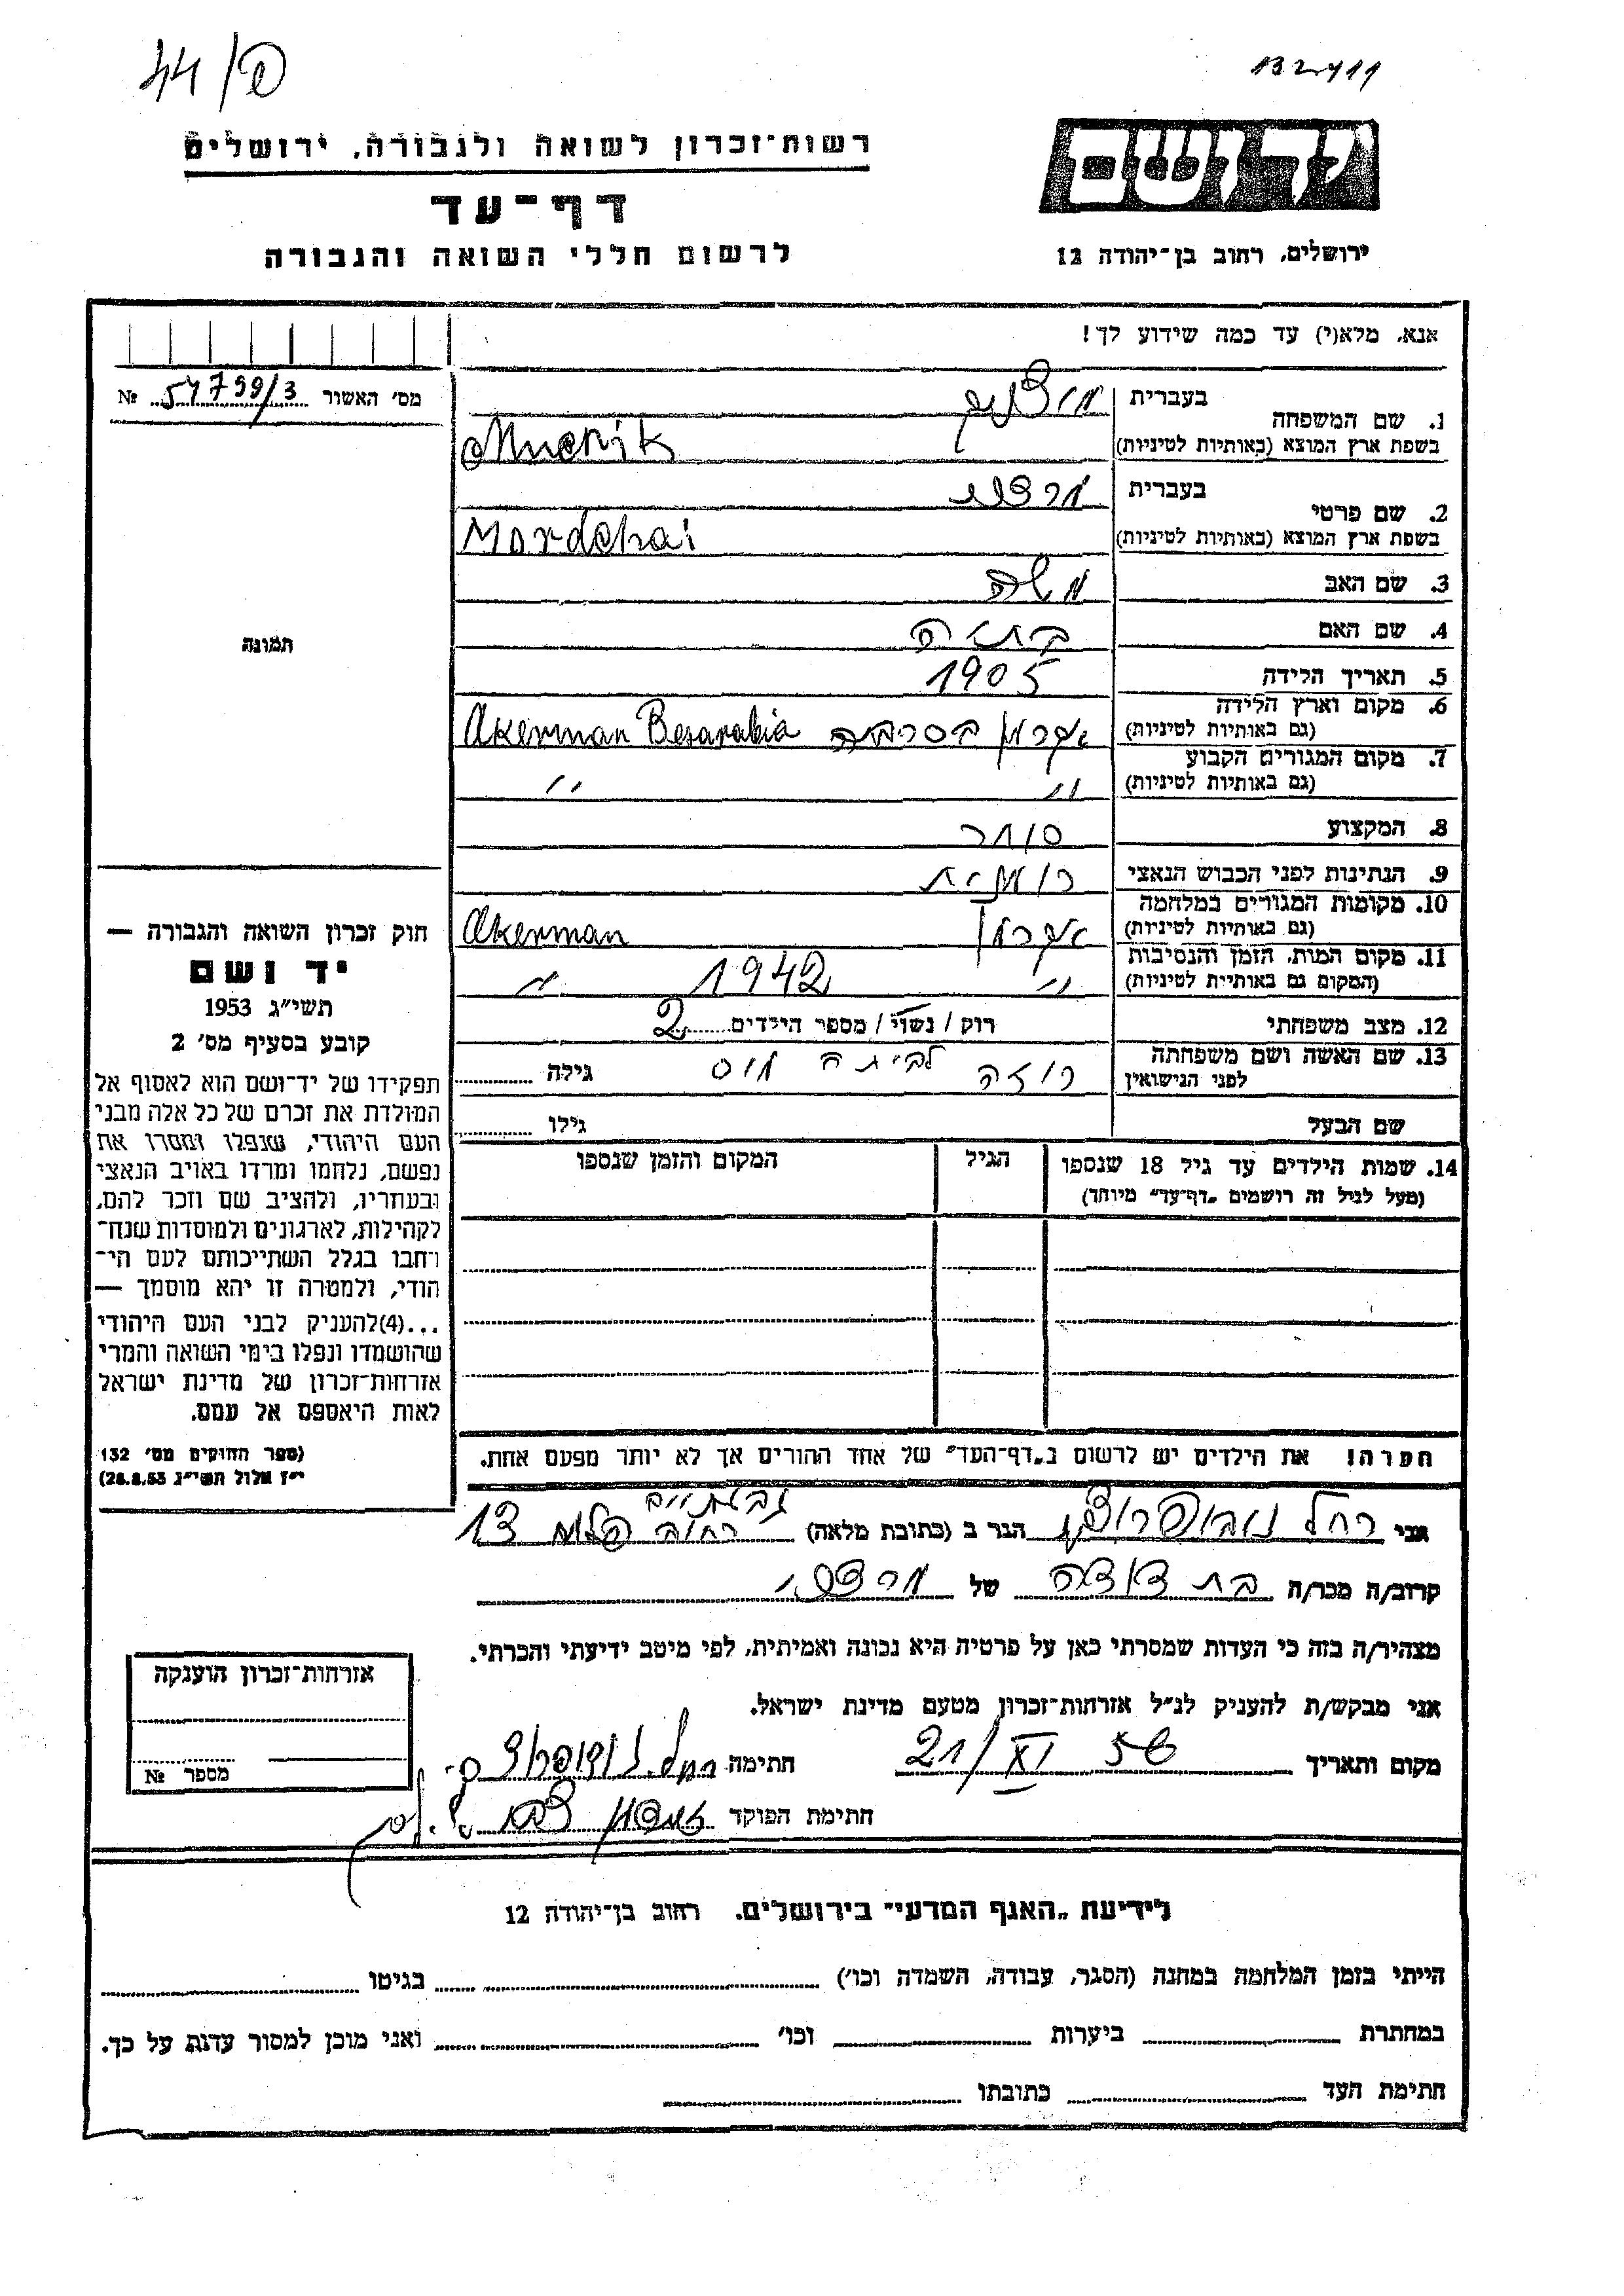 44/פ
132411
רשות־זכרון לשואה ולגבורה, ירושלים
דף־עד
לרשום חללי השואה והגבורה
ידושם
ירושלים, רחוב בן־יהודה 12
אנא, מלא(י) עד כמה שידוע לך!
מס׳ האשור 54799/3 №
1. שם המשפחה
בעברית
בשפת ארץ המוצא (באותיות לטיניות)
2. שם פרטי
בעברית מרדכי
בשפת ארץ המוצא (באותיות לטיניות) Mordehai
3. שם האב משה
4. שם האם
5. תאריך הלידה 1905
6. מקום וארץ הלידה אכרמן בסרביה Akerman Besarabia
(גם באותיות לטיניות)
7. מקום המגורים הקבוע " "
(גם באותיות לטיניות)
8. המקצוע סוחר
9. הנתינות לפני הכבוש הנאצי רומנית
10. מקומות המגורים במלחמה אכרמן Akerman
(גם באותיות לטיניות)
11. מקום המות, הזמן והנסיבות " 1942 "
(המקום גם באותיית לטיניות)
12. מצב משפחתי רוק / נשוי / מספר הילדים 2
13. שם האשה ושם משפחתה
לפני הנישואין רוזה לבית גילה
שם הבעל גילו
14. שמות הילדים עד גיל 18 שנספו
(מעל לגיל זה רושמים „דף־עד״ מיוחד)
הגיל
המקום והזמן שנספו
תמונה
חוק זכרון השואה והגבורה —
יד ושם
תשי״ג 1953
קובע בסעיף מס׳ 2
תפקידו של יד־ושם הוא לאסוף אל
המולדת את זכרם של כל אלה מבני
העם היהודי, שנפלו ומסרו את
נפשם, נלחמו ומרדו באויב הנאצי
ובעוזריו, ולהציב שם וזכר להם,
לקהילות, לארגונים ולמוסדות שנח־
רחבו בגלל השתייכותם לעם הי־
הודי, ולמטרה זו יהא מוסמך —
...(4)להעניק לבני העם היהודי
שהושמדו ונפלו בימי השואה והמרי
אזרחות־זכרון של מדינת ישראל
לאות היאספם אל עמם.
(ספר החוקים מס׳ 132
י״ז אלול תשי״ג 28.8.53)
הערה! את הילדים יש לרשום ב„דף־העד״ של אחד ההורים אך לא יותר מפעם אחת.
גבעתיים
אני רחל הגר ב (כתובת מלאה) רחוב 13
קרוב/ה מכר/ה בת דודה של מרדכי
מצהיר/ה בזה כי העדות שמסרתי כאן על פרטיה היא נכונה ואמיתית, לפי מיטב ידיעתי והכרתי.
אני מבקש/ת להעניק לנ״ל אזרחות־זכרון מטעם מדינת ישראל.
מקום ותאריך 21/XI 56 חתימה
חתימת הפוקד
אזרחות־זכרון הוענקה
מספר №
לידיעת „האגף המדעי״ בירושלים, רחוב בן־יהודה 12
הייתי בזמן המלחמה במחנה (הסגר, עבודה, השמדה וכו׳) בגיטו
במחתרת ביערות וכו׳ ואני מוכן למסור עדות על כך.
חתימת העד כתובתו